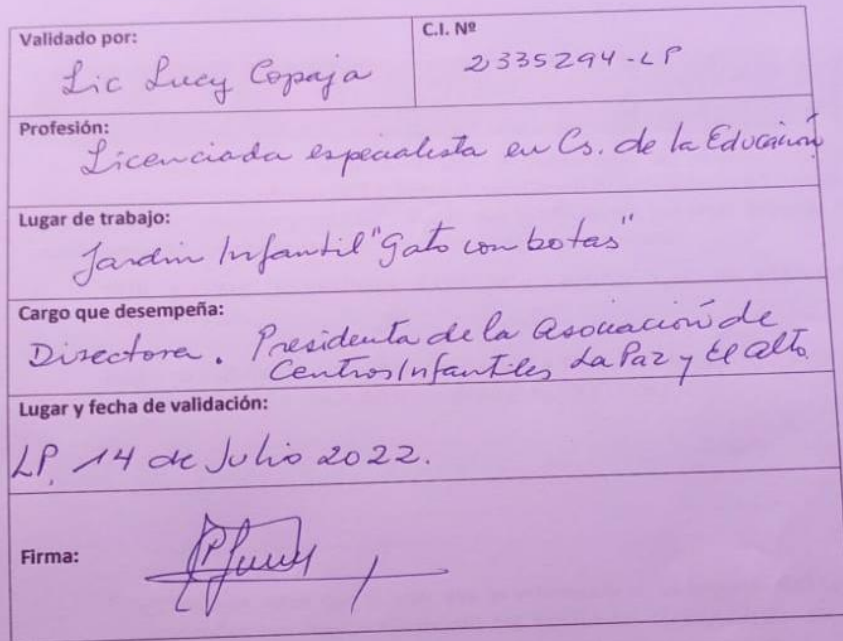 Validado por:
Lic Lucy Copaja
C.I. Nº
2335294-LP
Profesión:
Licenciada especialista en Cs. de la Educación
Lugar de trabajo:
Jardin Infantil "Gato con botas"
Cargo que desempeña:
Directora. Presidenta de la Asociación de
Centros Infantiles La Paz y El Alto.
Lugar y fecha de validación:
LP, 14 de Julio 2022.
Firma: